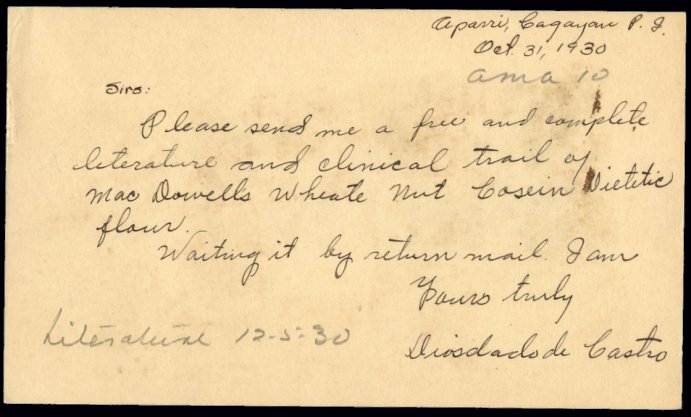 Aparri, Cagayan P. I.
Oct. 31, 1930
ama 10
Sirs:
Please send me a free and complete
literature and clinical trail of
Mac Dowells Wheate Nut Cosein Dietetic
flour.
Waiting it by return mail. I am
Yours truly
Diosdado de Castro
Literature 12-5-30